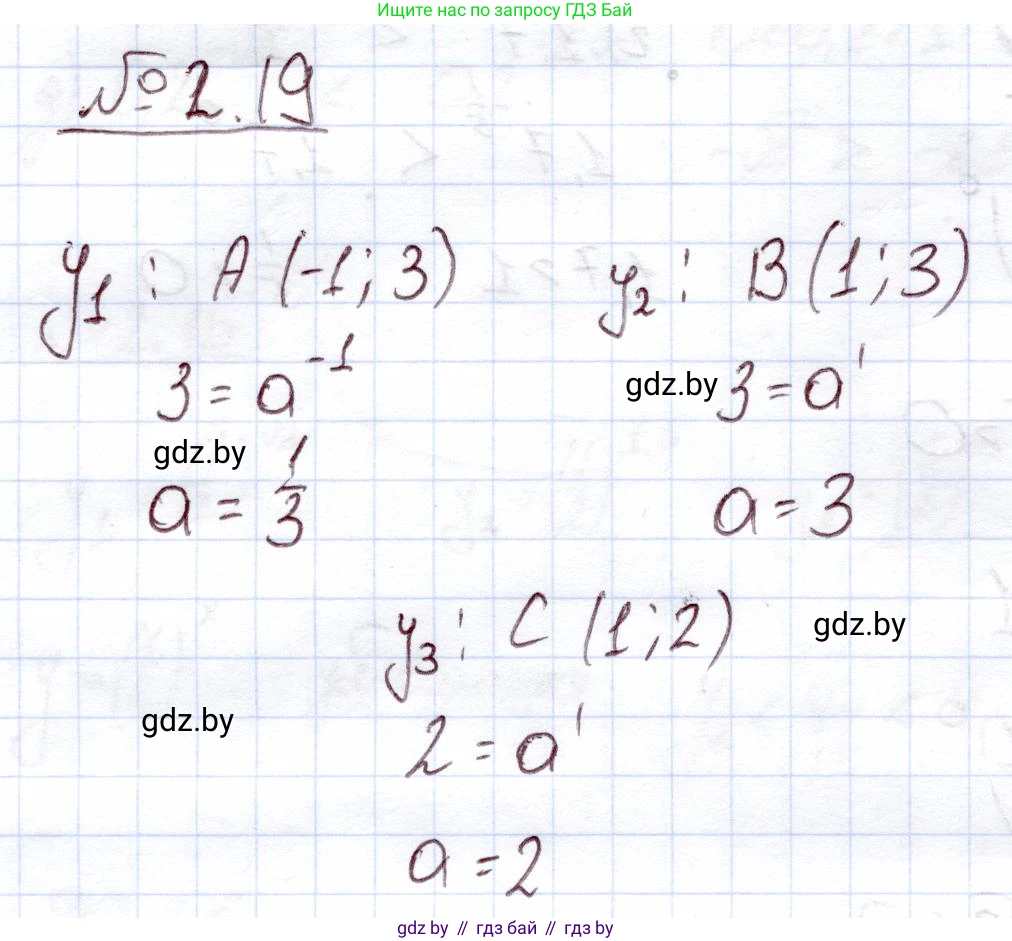 Ищите нас по запросу ГДЗ Бай
№ 2.19
y₁ : A (-1; 3)
3 = a⁻¹
gdz.by
a = 1/3
y₂ : B (1; 3)
gdz.by
3 = a¹
a = 3
y₃ : C (1; 2)
gdz.by
gdz.by
2 = a¹
a = 2
gdz.by // гдз бай // гдз by